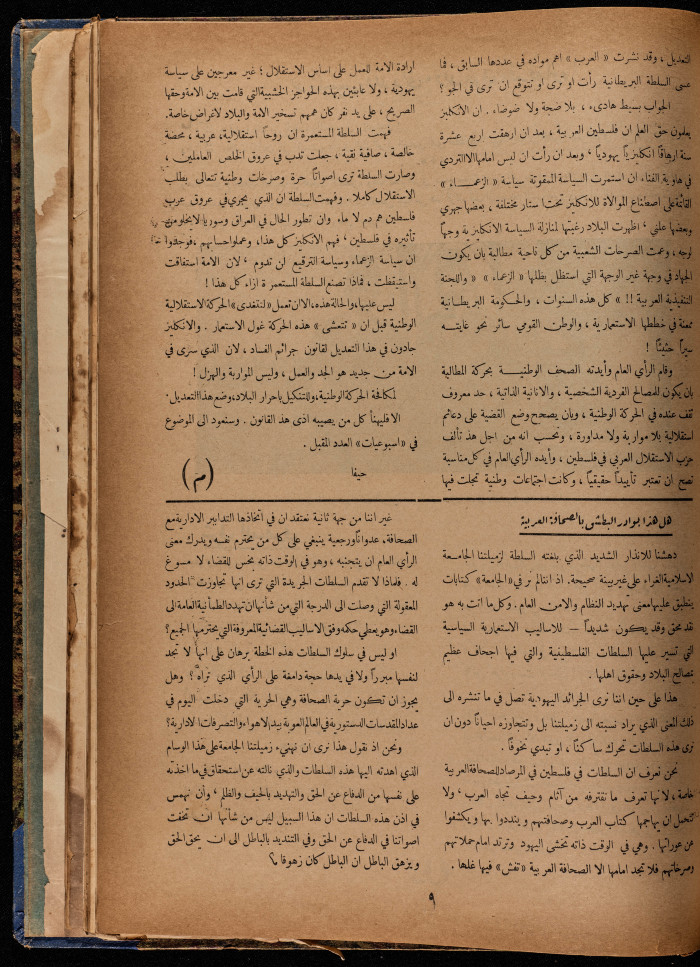 التعديل ، وقد نشرت « العرب » اهم مواده في عددها السابق ، فما
عسى السلطة البريطانية رأت او ترى او تتوقع ان ترى في الجو ؟
الجواب بسيط هادىء ، بلا ضجة ولا ضوضاء . ان الانكليز
يعلمون حق العلم ان فلسطين العربية ، بعد ان ارهقت اربع عشرة
سنة ارهاقاً انكليزياً يهودياً ، وبعد ان رأت ان ليس امامها الا التردي
في هاوية الفناء ان استمرت السياسة الممقوتة سياسة « الزعمــاء »
القائمة على اصطناع الموالاة للانكليز تحت استار مختلفة ، بعضها جهري
وبعضها علني ، اظهرت البلاد رغبتها لمنازلة السياسة الانكليزية وجهاً
لوجه ، وعمت الصرخات الشعبية من كل ناحية مطالبة بان يكون
الجهاد في وجهة غير الوجهة التي استظل بظلها « الزعماء » « واللجنة
التنفيذية العربية !! » كل هذه السنوات ، والحكومة البريطانية
ممعنة في خططها الاستعمارية ، والوطن القومي سائر نحو غايته
سيراً حثيثاً !
وقام الرأي العام وأيدته الصحف الوطنية بحركة المطالبة
بان يكون للمصالح الفردية الشخصية ، والانانية الذاتية ، حد معروف
تقف عنده في الحركة الوطنية ، وبان يصحح وضع القضية على دعائم
استقلالية بلا مواربة ولا مداورة ، ونحسب انه من اجل هذ تألف
حزب الاستقلال العربي في فلسطين ، وأيده الرأي العام في كل مناسبة
تصح ان تعتبر تأييداً حقيقياً ، وكانت اجتماعات وطنية تجلت فيها
ارادة الامة للعمل على اساس الاستقلال ؛ غير معرجين على سياسة
يهودية ، ولا عابئين بهذه الحواجز الخشبية التي قامت بين الامة وحقها
الصريح ، على يد نفر كان همهم تسخير الامة والبلاد لاغراض خاصة .
فهمت السلطة المستعمرة ان روحاً استقلالية ، عربية ، محضة
خالصة ، صافية نقية ، جعلت تدب في عروق الخلص العاملين ،
وصارت السلطة ترى اصواتاً حرة وصرخات وطنية تتعالى بطلب
الاستقلال كاملا . وفهمت السلطة ان الذي يجري في عروق عرب
فلسطين هم دم لا ماء وان تطور الحال في العراق وسوريا لا يخلو من
تأثيره في فلسطين ، فهم الانكليز كل هذا ، وعملوا حسابهم ، فوجدوا
ان سياسة الزعماء وسياسة الترقيع لن تدوم ، لان الامة استفاقت
واستيقظت ، فماذا تصنع السلطة المستعمرة ازاء كل هذا !
ليس عليها ، والحالة هذه ، الا ان تعمل « لتتغدى » الحركة الاستقلالية
الوطنية قبل ان « تتعشى » هذه الحركة غول الاستعمار . والانكليز
جادون في هذا التعديل لقانون جرائم الفساد ، لان الذي سرى في
الامة من جديد هو الجد والعمل ، وليس المواربة والهزل !
لمكافحة الحركة الوطنية ، وللتنكيل باحرار البلاد ، وضع هذا التعديل .
الا فليهنأ كل من يصيبه اذى هذ القانون . وسنعود الى الموضوع
في « اسبوعيات » العدد المقبل .
حيفا
(م)
هل هذا بوادر البطش بالصحافة العربية
دهشنا للانذار الشديد الذي بلغته السلطة لزميلتنا الجامعة
الاسلامية الغراء على غير بينة صحيحة . اذ اننا لم نر في « الجامعة » كتابات
ينطبق عليها معنى تهديد النظام والامن العام . وكل ما اتت به هو
نقد محق وقد يكون شديداً — للاساليب الاستعمارية السياسية
التي تسير عليها السلطات الفلسطينية والتي فيها اجحاف عظيم
بمصالح البلاد وحقوق اهلها .
هذا على حين اننا نرى الجرائد اليهودية تصل في ما تنشره الى
ذلك المعنى الذي يراد نسبته الى زميلتنا بل وتتجاوزه احياناً دون ان
نرى هذه السلطات تحرك ساكناً ، او تبدي تخوفاً .
نحن نعرف ان السلطات في فلسطين في المرصاد للصحافة العربية
خاصة ، لانها تعرف ما تقترفه من آثام وحيف تجاه العرب ، ولا
تتحمل ان يهاجمها كتاب العرب وصحافتهم وينددوا بها ويكشفوا
عن عوراتها . وهي في الوقت ذاته تخشى اليهود وترتد امام حملاتهم
وصرخاتهم فلا تجد امامها الا الصحافة العربية « تفش » فيها غلها .
غير اننا من جهة ثانية نعتقد ان في اتخاذها التدابير الادارية مع
الصحافة ، عدواناً ورجعية ينبغي على كل من يحترم نفسه ويدرك معنى
الرأي العام ان يتجنبه ، وهو في الوقت ذاته بخس للقضاء لا مسوغ
له . فلماذا لا تقدم السلطات الجريدة التي ترى انها تجاوزت الحدود
المعقولة التي وصلت الى الدرجة التي من شأنها ان تهدد الطمأنينة العامة الى
القضاء وهو يعطي حكمه وفق الاساليب القضائية المعروفة التي يحترمها الجميع ؟
او ليس في سلوك السلطات هذه الخطة برهان على انها لا تجد
لنفسها مبرراً ولا في يدها حجة دامغة على الرأي الذي تراه ؟ وهل
يجوز ان تكون حرية الصحافة وهي الحرية التي دخلت اليوم في
عداد المقدسات الدستورية في العالم العوبة بيد الاهواء والتصرفات الادارية ؟
ونحن اذ نقول هذا نرى ان نهنيء زميلتنا الجامعة على هذا الوسام
الذي اهدته اليها هذه السلطات والذي نالته عن استحقاق في ما اخذته
على نفسها من الدفاع عن الحق والتهديد بالحيف والظلم ، وأن نهمس
في اذن هذه السلطات ان هذا السبيل ليس من شأنها ان تخفت
اصواتنا في الدفاع عن الحق وفي التنديد بالباطل الى ان يحق الحق
ويزهق الباطل ان الباطل كان زهوقا م؟
٩